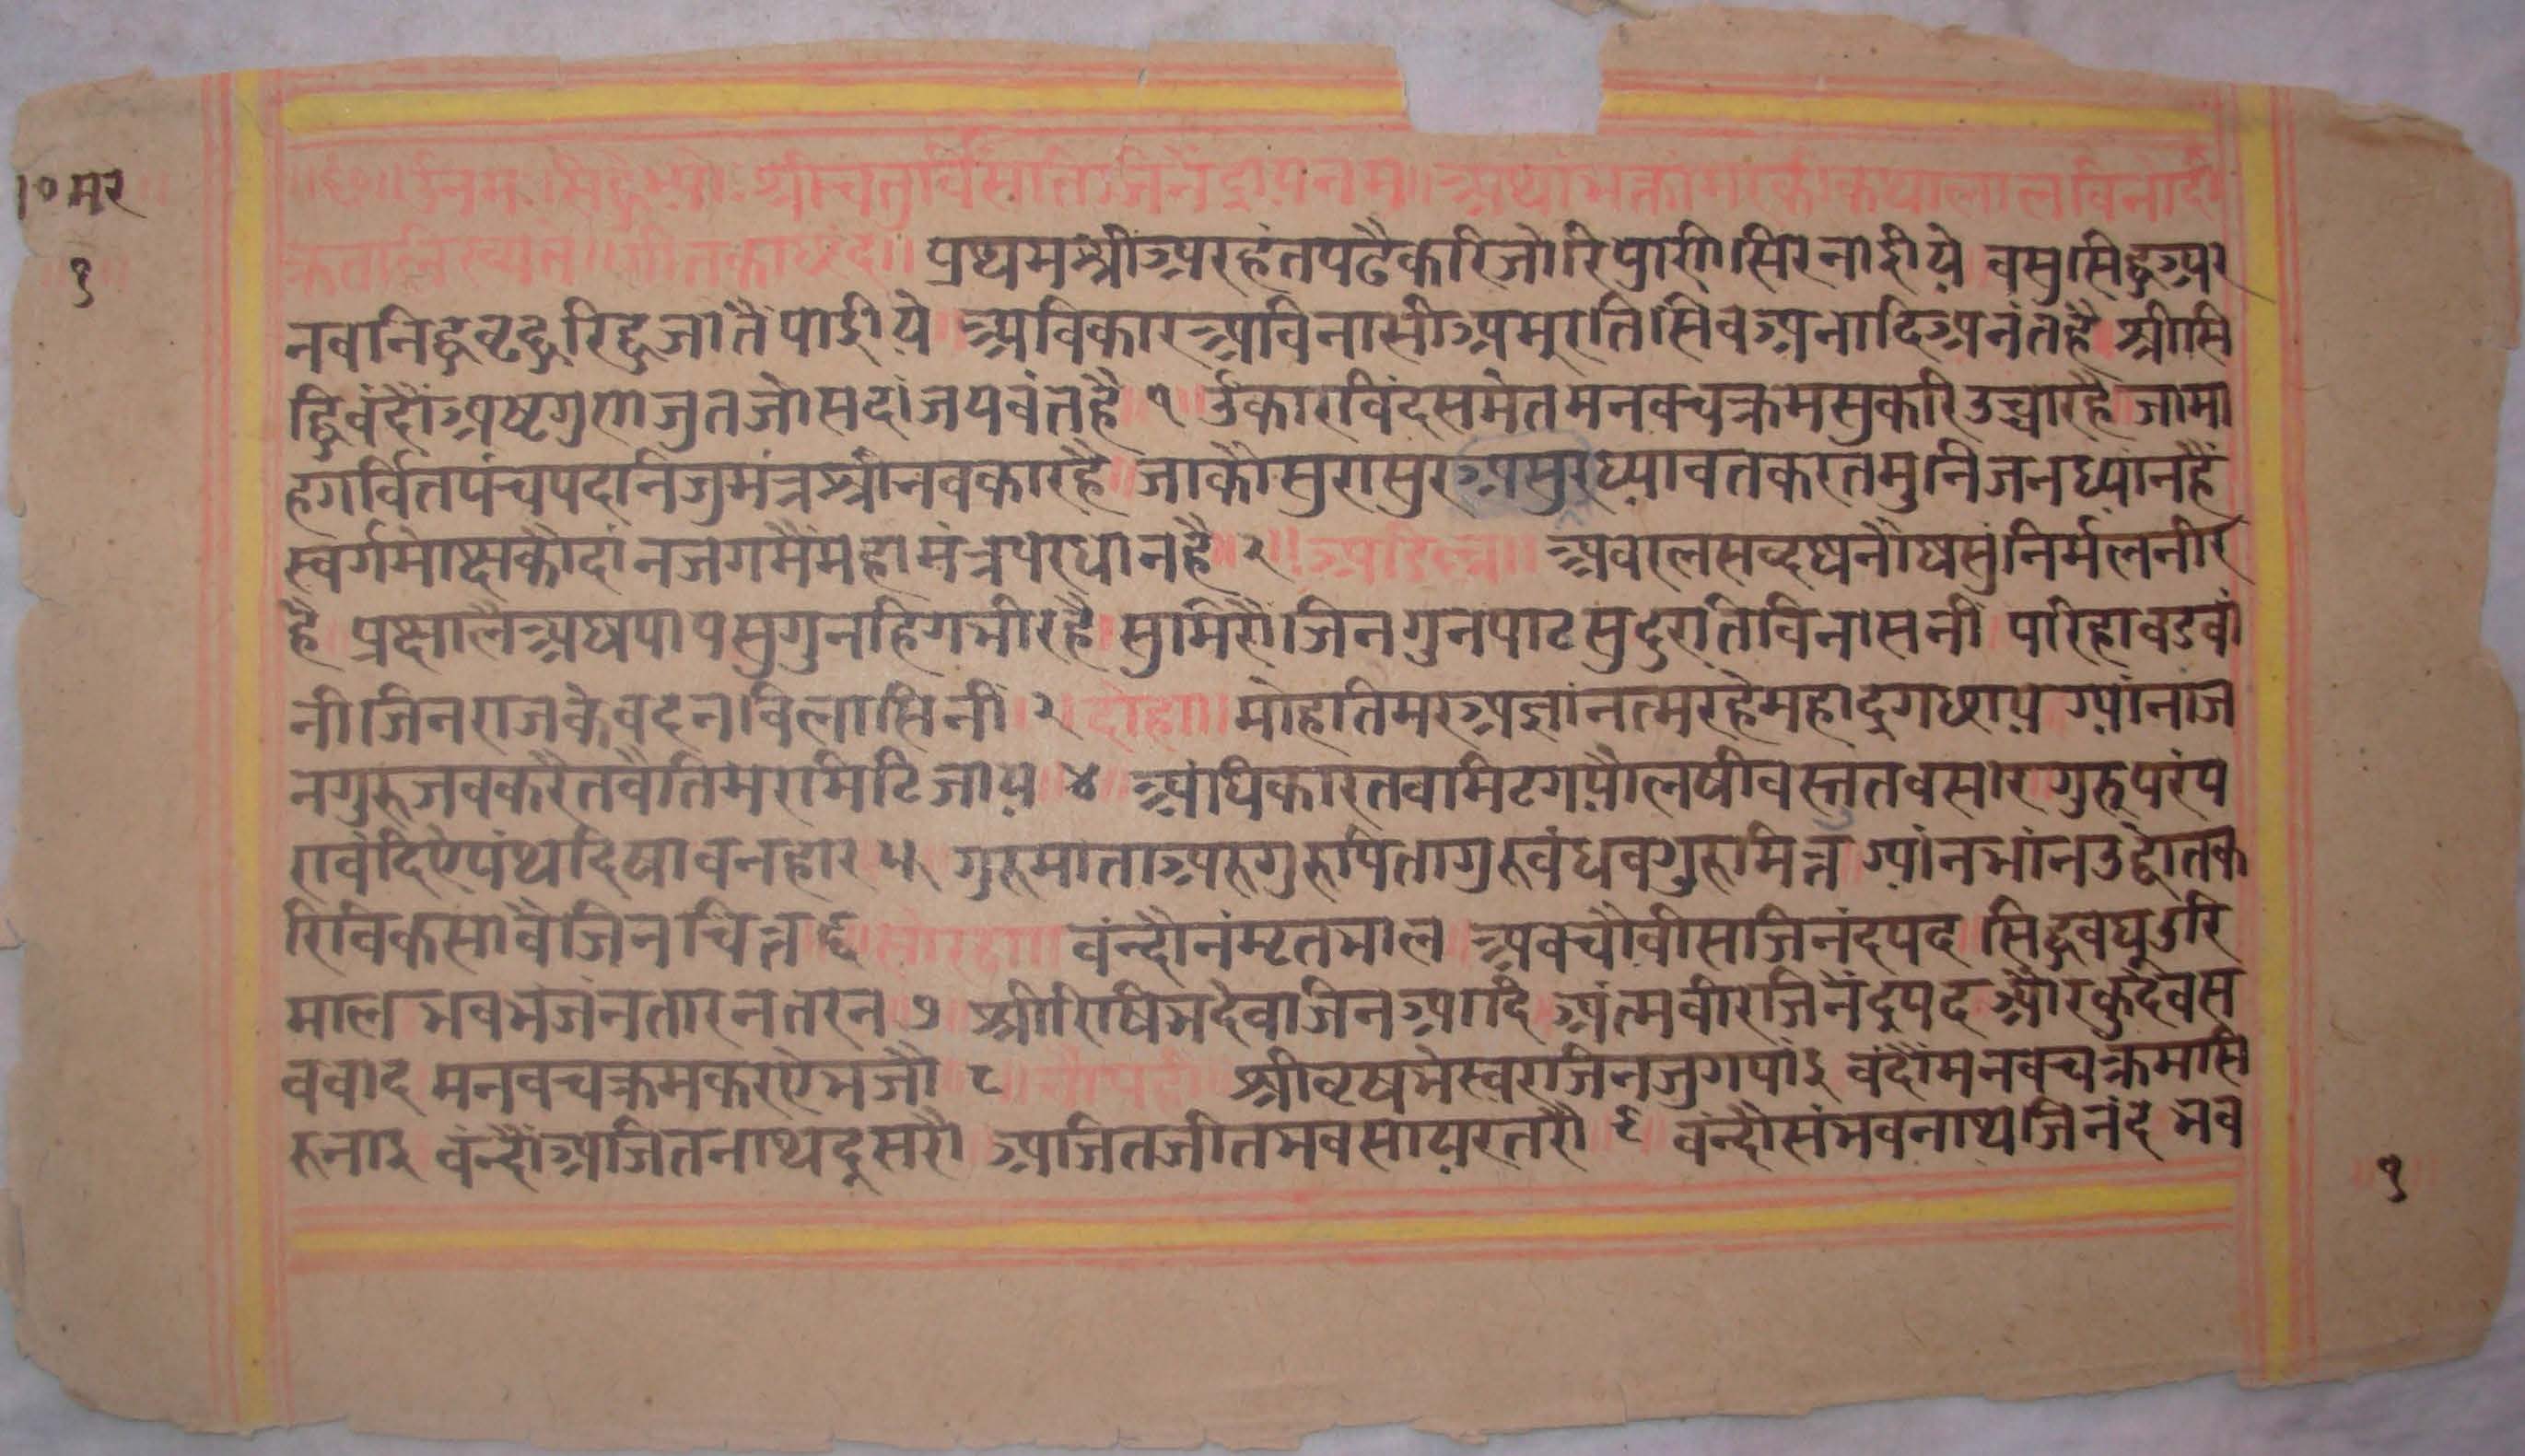 १० म २
१
॥६०॥ उँनमः सिद्धेभ्यो श्रीचतुर्विंसतिजिनेंद्रायनम॥ अथभक्तांमरकीकथालालविनोदी
क्रतलिख्यते॥ गीतकाछंद॥ प्रथमश्रीअरहंतपढैकरिजोरिप्रांणीसिरनाईये वसुसिद्धिअर
नवनिद्धवृद्धरिद्धजातैपाईये ॥ अविकारअविनासीअमुरतिसिवअनादिअनंतहै श्रीसि
द्धिवंदौंअष्टगुणजुतजोसदांजयवंतहै १ उँकारविंदसमेतमनवचक्रमसुकरिउच्चारहै जामा
हगर्वितपंचपदनिजुमंत्रश्रीनवकारहै॥ जाकौसुरासुरअसुरध्यावतकरतमुनिजनध्यांनहैं
स्वर्गमोक्षकौदांनजगमैंमहामंत्रपरधानहै॥२॥ अडिल्ल॥ अवरलसव्दघनौघसुनिर्मलनीर
है प्रक्षालैअघपापसुगुनहिगभीरहै सुमिरौजिनगुनपाटसुदुरतिविनासनी परिहावडवां
नीजिनराजकेवदनविलासिनी॥३॥दोहा॥ मोहतिमरअज्ञांनत्मरहेमहादुगछाय ग्यांनांज
नगुरूजवकरैतवैतिमरमिटिजाय ४ अंधिकारतवमिटगयौलषीवस्तुतवसार गुरूपरंप
रावंदिऐपंथदिषावनहार ५ गुरूमाताअरूगुरूपितागुरूवंधवगुरूमित्र ग्यांनभांनउद्योतक
रिविकसावैजिनचित्र ६ ॥सोरठा॥ वंन्दौनंम्रतभाल अवचौवीसजिनंदपद सिद्धवधुउरि
माल भवभंजनतारनतरन ७ श्रीरिषिभदेवजिनआदि अंत्मवीरजिनैंद्रपद औरकुदेवस
ववाद मनवचक्रमकरऐभजौ ८ ॥चौपही॥ श्रीवृषभेस्वरजिनजुगपांइ वंदौंमनवचक्रमसि
रूनाइ वंन्दौंअजितनाथदुसरौ अजितजीतभवसायरतरौ ९ वंन्दौसंभवनाथजिनंद भव
१